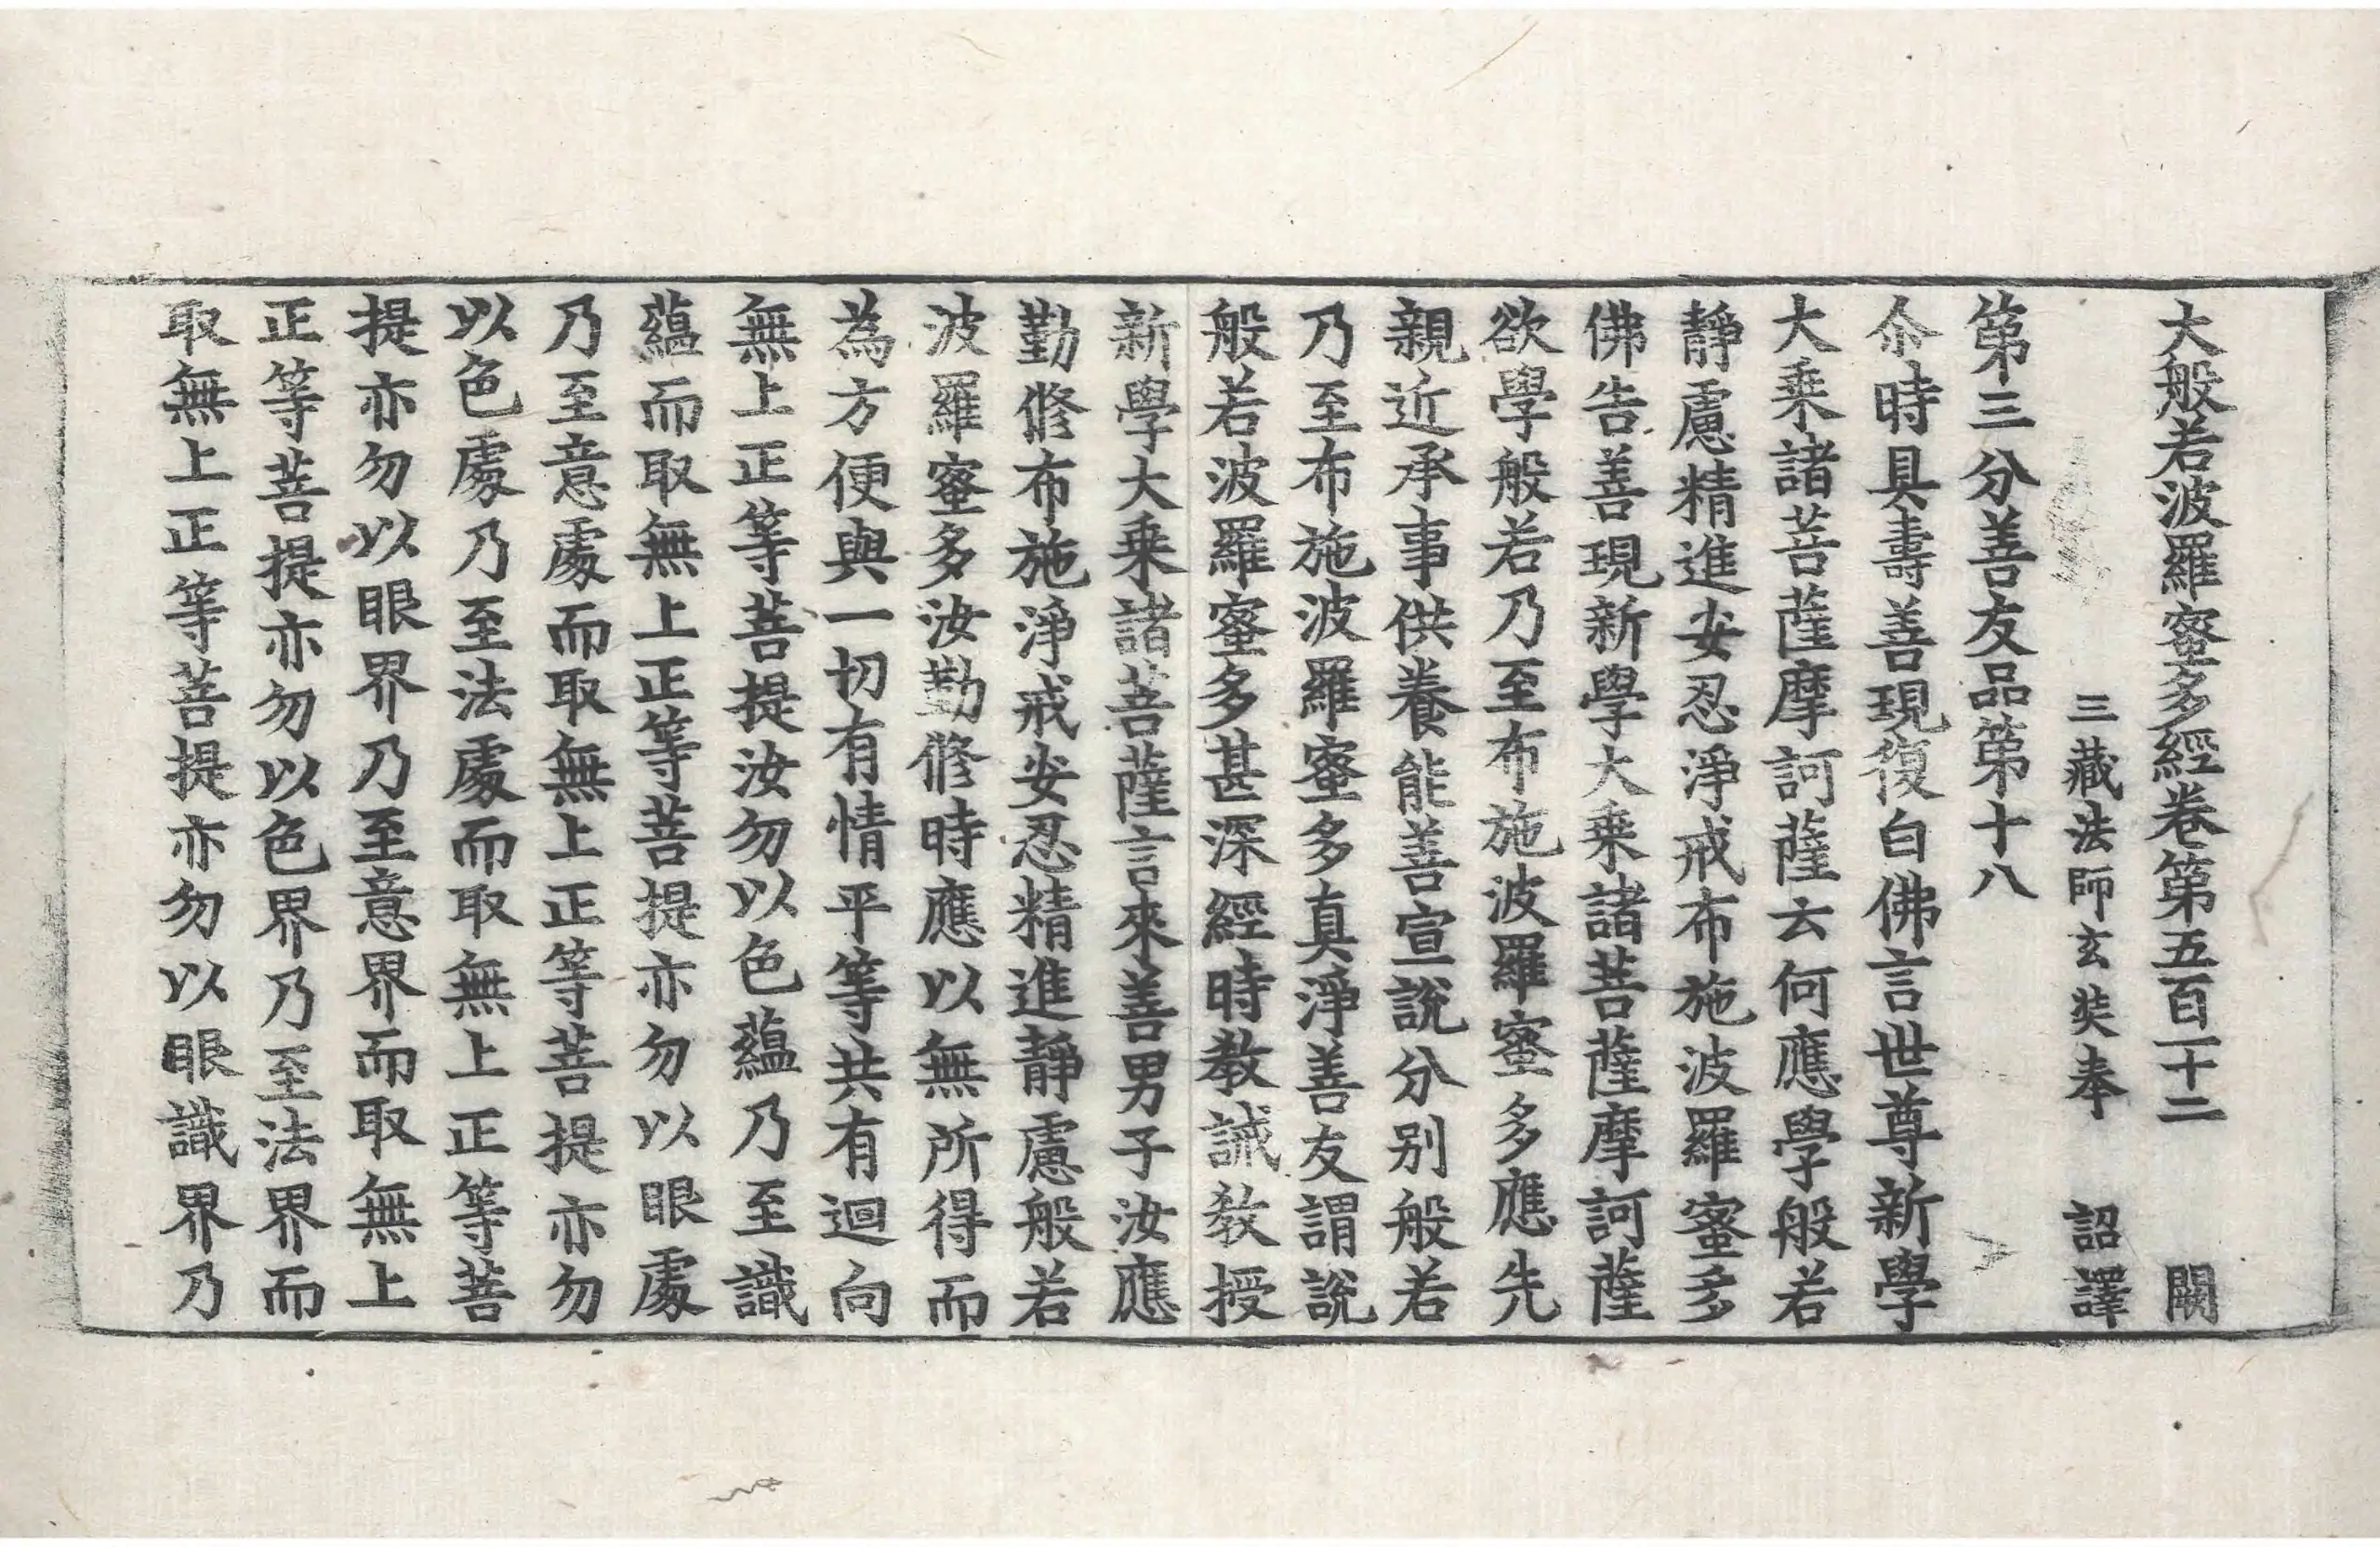 大般若波羅蜜多經卷第五百一十二 闕
三藏法師玄奘奉 詔譯
第三分善友品第十八
尒時具壽善現復白佛言世尊新學
大乘諸菩薩摩訶薩云何應學般若
靜慮精進安忍淨戒布施波羅蜜多
佛告善現新學大乘諸菩薩摩訶薩
欲學般若乃至布施波羅蜜多應先
親近承事供養能善宣說分別般若
乃至布施波羅蜜多真淨善友謂說
般若波羅蜜多甚深經時教誡教授
新學大乘諸菩薩言來善男子汝應
勤修布施淨戒安忍精進靜慮般若
波羅蜜多汝勤修時應以無所得而
為方便與一切有情平等共有迴向
無上正等菩提汝勿以色蘊乃至識
蘊而取無上正等菩提亦勿以眼處
乃至意處而取無上正等菩提亦勿
以色處乃至法處而取無上正等菩
提亦勿以眼界乃至意界而取無上
正等菩提亦勿以色界乃至法界而
取無上正等菩提亦勿以眼識界乃